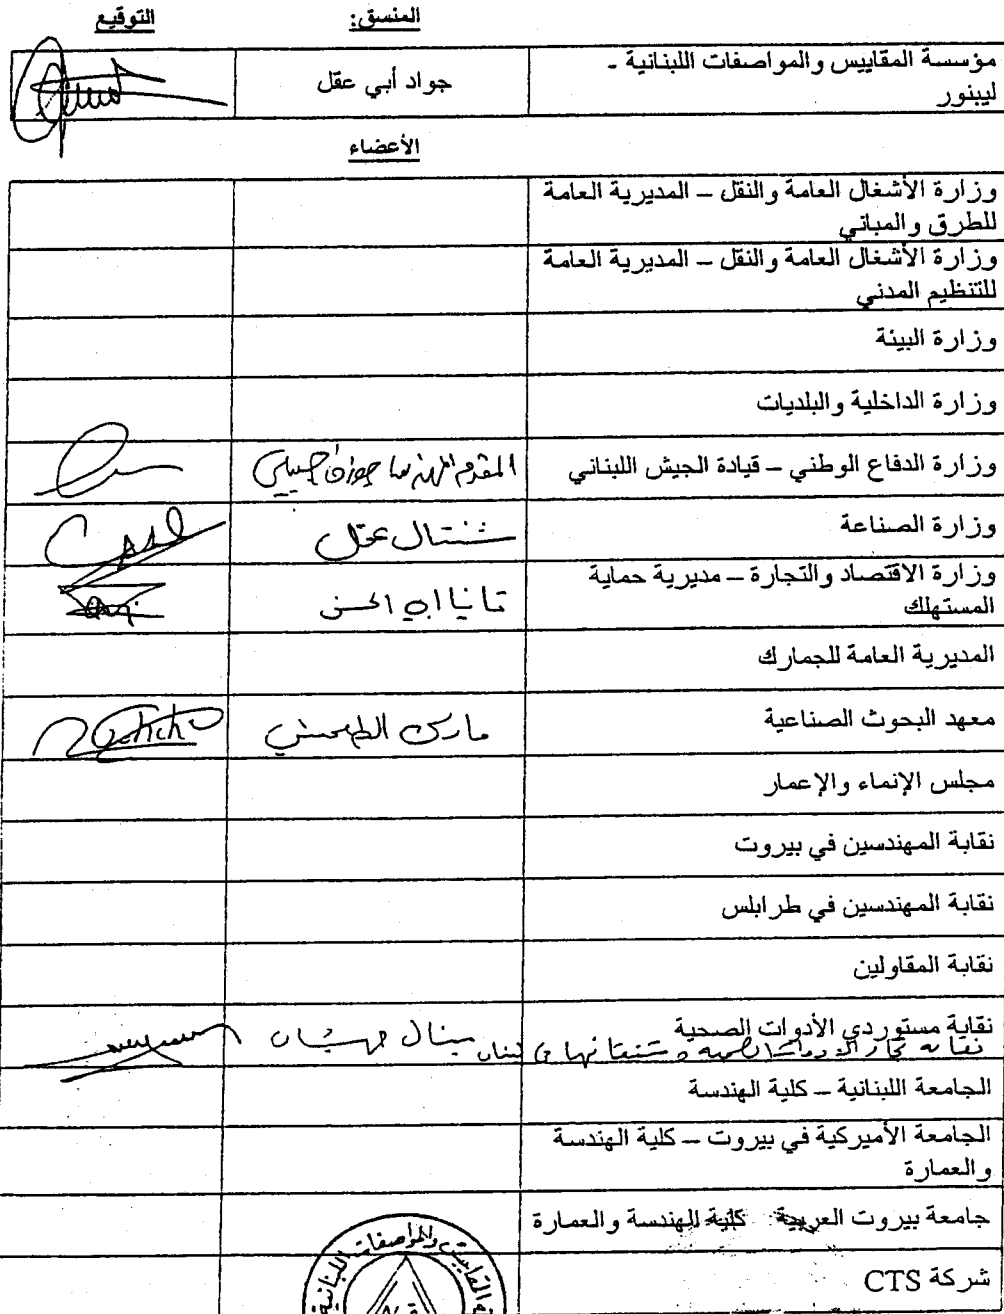 المنسق: التوقيع
مؤسسة المقاييس والمواصفات اللبنانية - جواد أبي عقل
ليبنور
الأعضاء
وزارة الأشغال العامة والنقل – المديرية العامة
للطرق والمباني
وزارة الأشغال العامة والنقل – المديرية العامة
للتنظيم المدني
وزارة البيئة
وزارة الداخلية والبلديات
وزارة الدفاع الوطني – قيادة الجيش اللبناني المقدم المهندس
وزارة الصناعة شنتال عقل
وزارة الاقتصاد والتجارة – مديرية حماية
المستهلك تانيا ابي الحسن
المديرية العامة للجمارك
معهد البحوث الصناعية مارك
مجلس الإنماء والإعمار
نقابة المهندسين في بيروت
نقابة المهندسين في طرابلس
نقابة المقاولين
نقابة مستوردي الأدوات الصحية
نقابة تجار الادوات الصحية و في لبنان
الجامعة اللبنانية – كلية الهندسة
الجامعة الأميركية في بيروت – كلية الهندسة
والعمارة
جامعة بيروت العربية كلية الهندسة والعمارة
شركة CTS
المقاييس والمواصفات اللبنانية